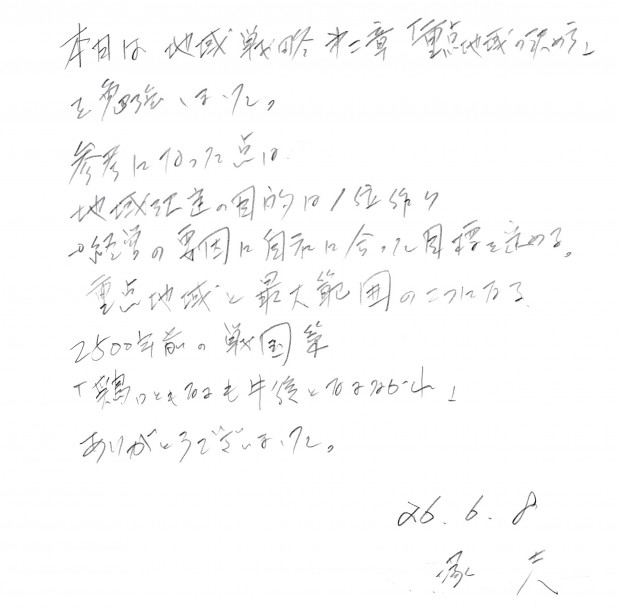 本日は 地域戦略 第二章「重点地域の決め方」
を勉強しました。
参考になった点は
地域経営の目的は1位作り
経営の要因に自社に合った目標を定める。
重点地域と最大範囲の二つになる
2500年前の戦国策
「鶏口ともなるも牛後となるなかれ」
ありがとうございました。
26.6.8